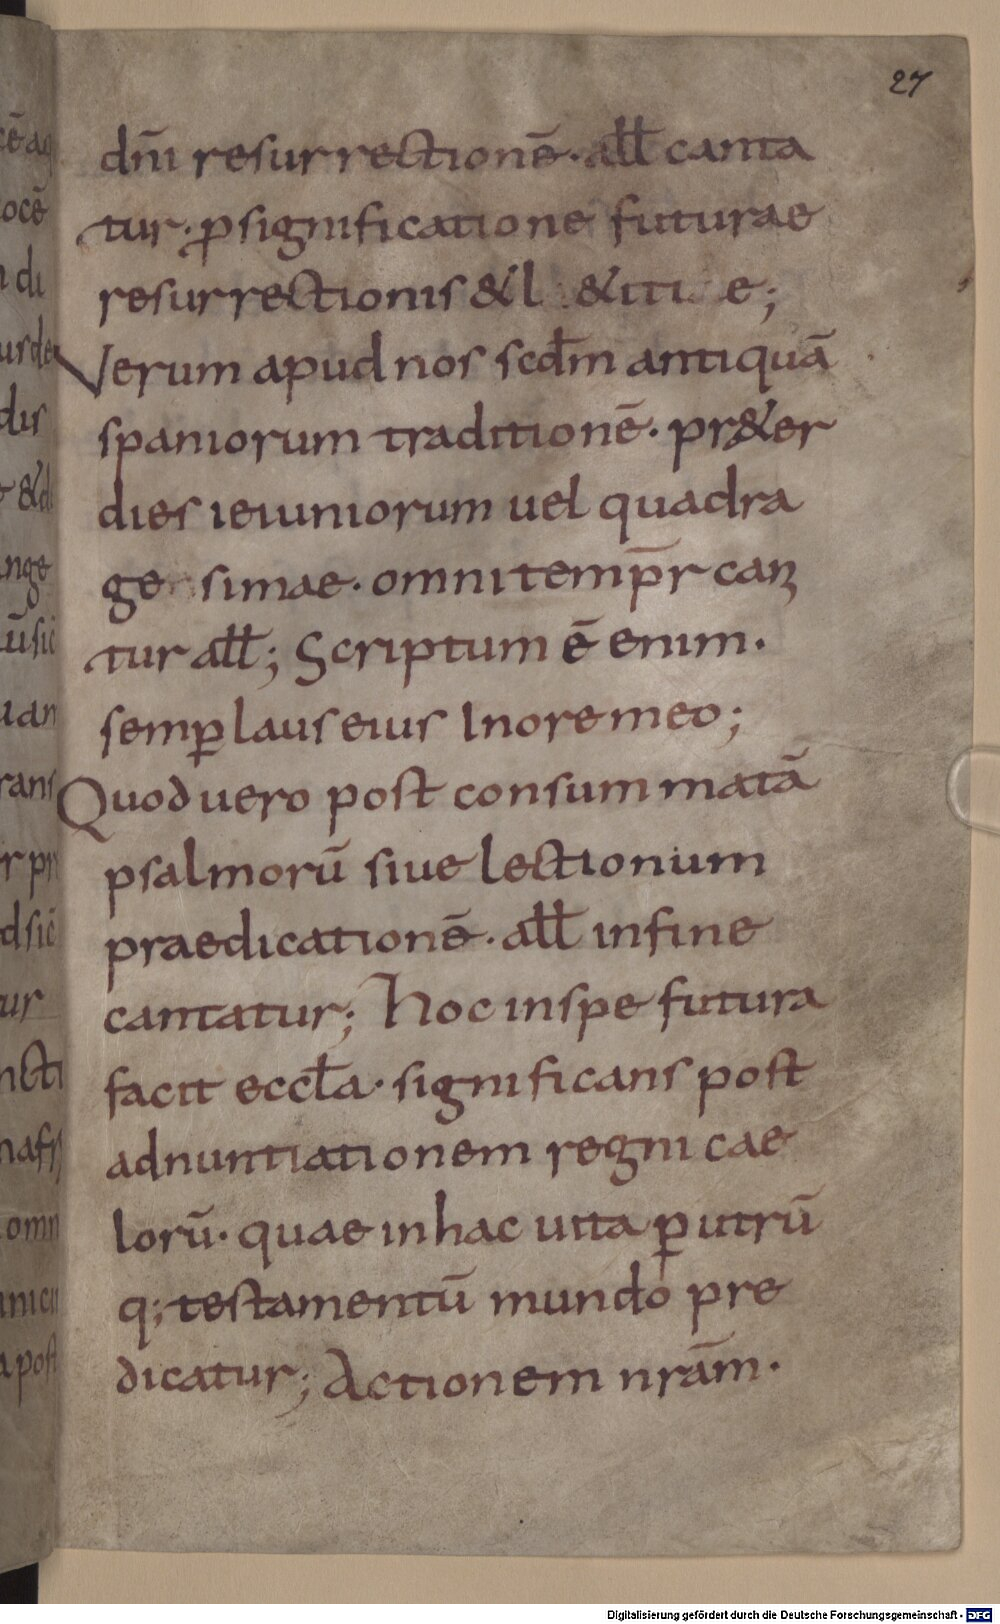 27
dn̄i resurrectionē· all̄ canta
tur· ꝓ significatione futurae
resurrectionis & l &iti e;
Verum apud nos scd̄m antiquā
spaniorum traditionē· pr&er
dies ieiuniorum uel quadra
ge simae· omni temp̄r can
tur all̄; Scriptum ē enim·
semꝑ laus eius In ore meo;
Quod uero post consummatā
psalmorū siue lectionum
praedicationē· all̄ in fine
cantatur; Hoc in spe futura
facit eccl̄a· significans post
adnuntiationem regni cae
lorū· quae in hac uita ꝑ utrū
q; testamentū mundo pre
dicatur; Actionem nrām·
Digitalisierung gefördert durch die Deutsche Forschungsgemeinschaft - DFG